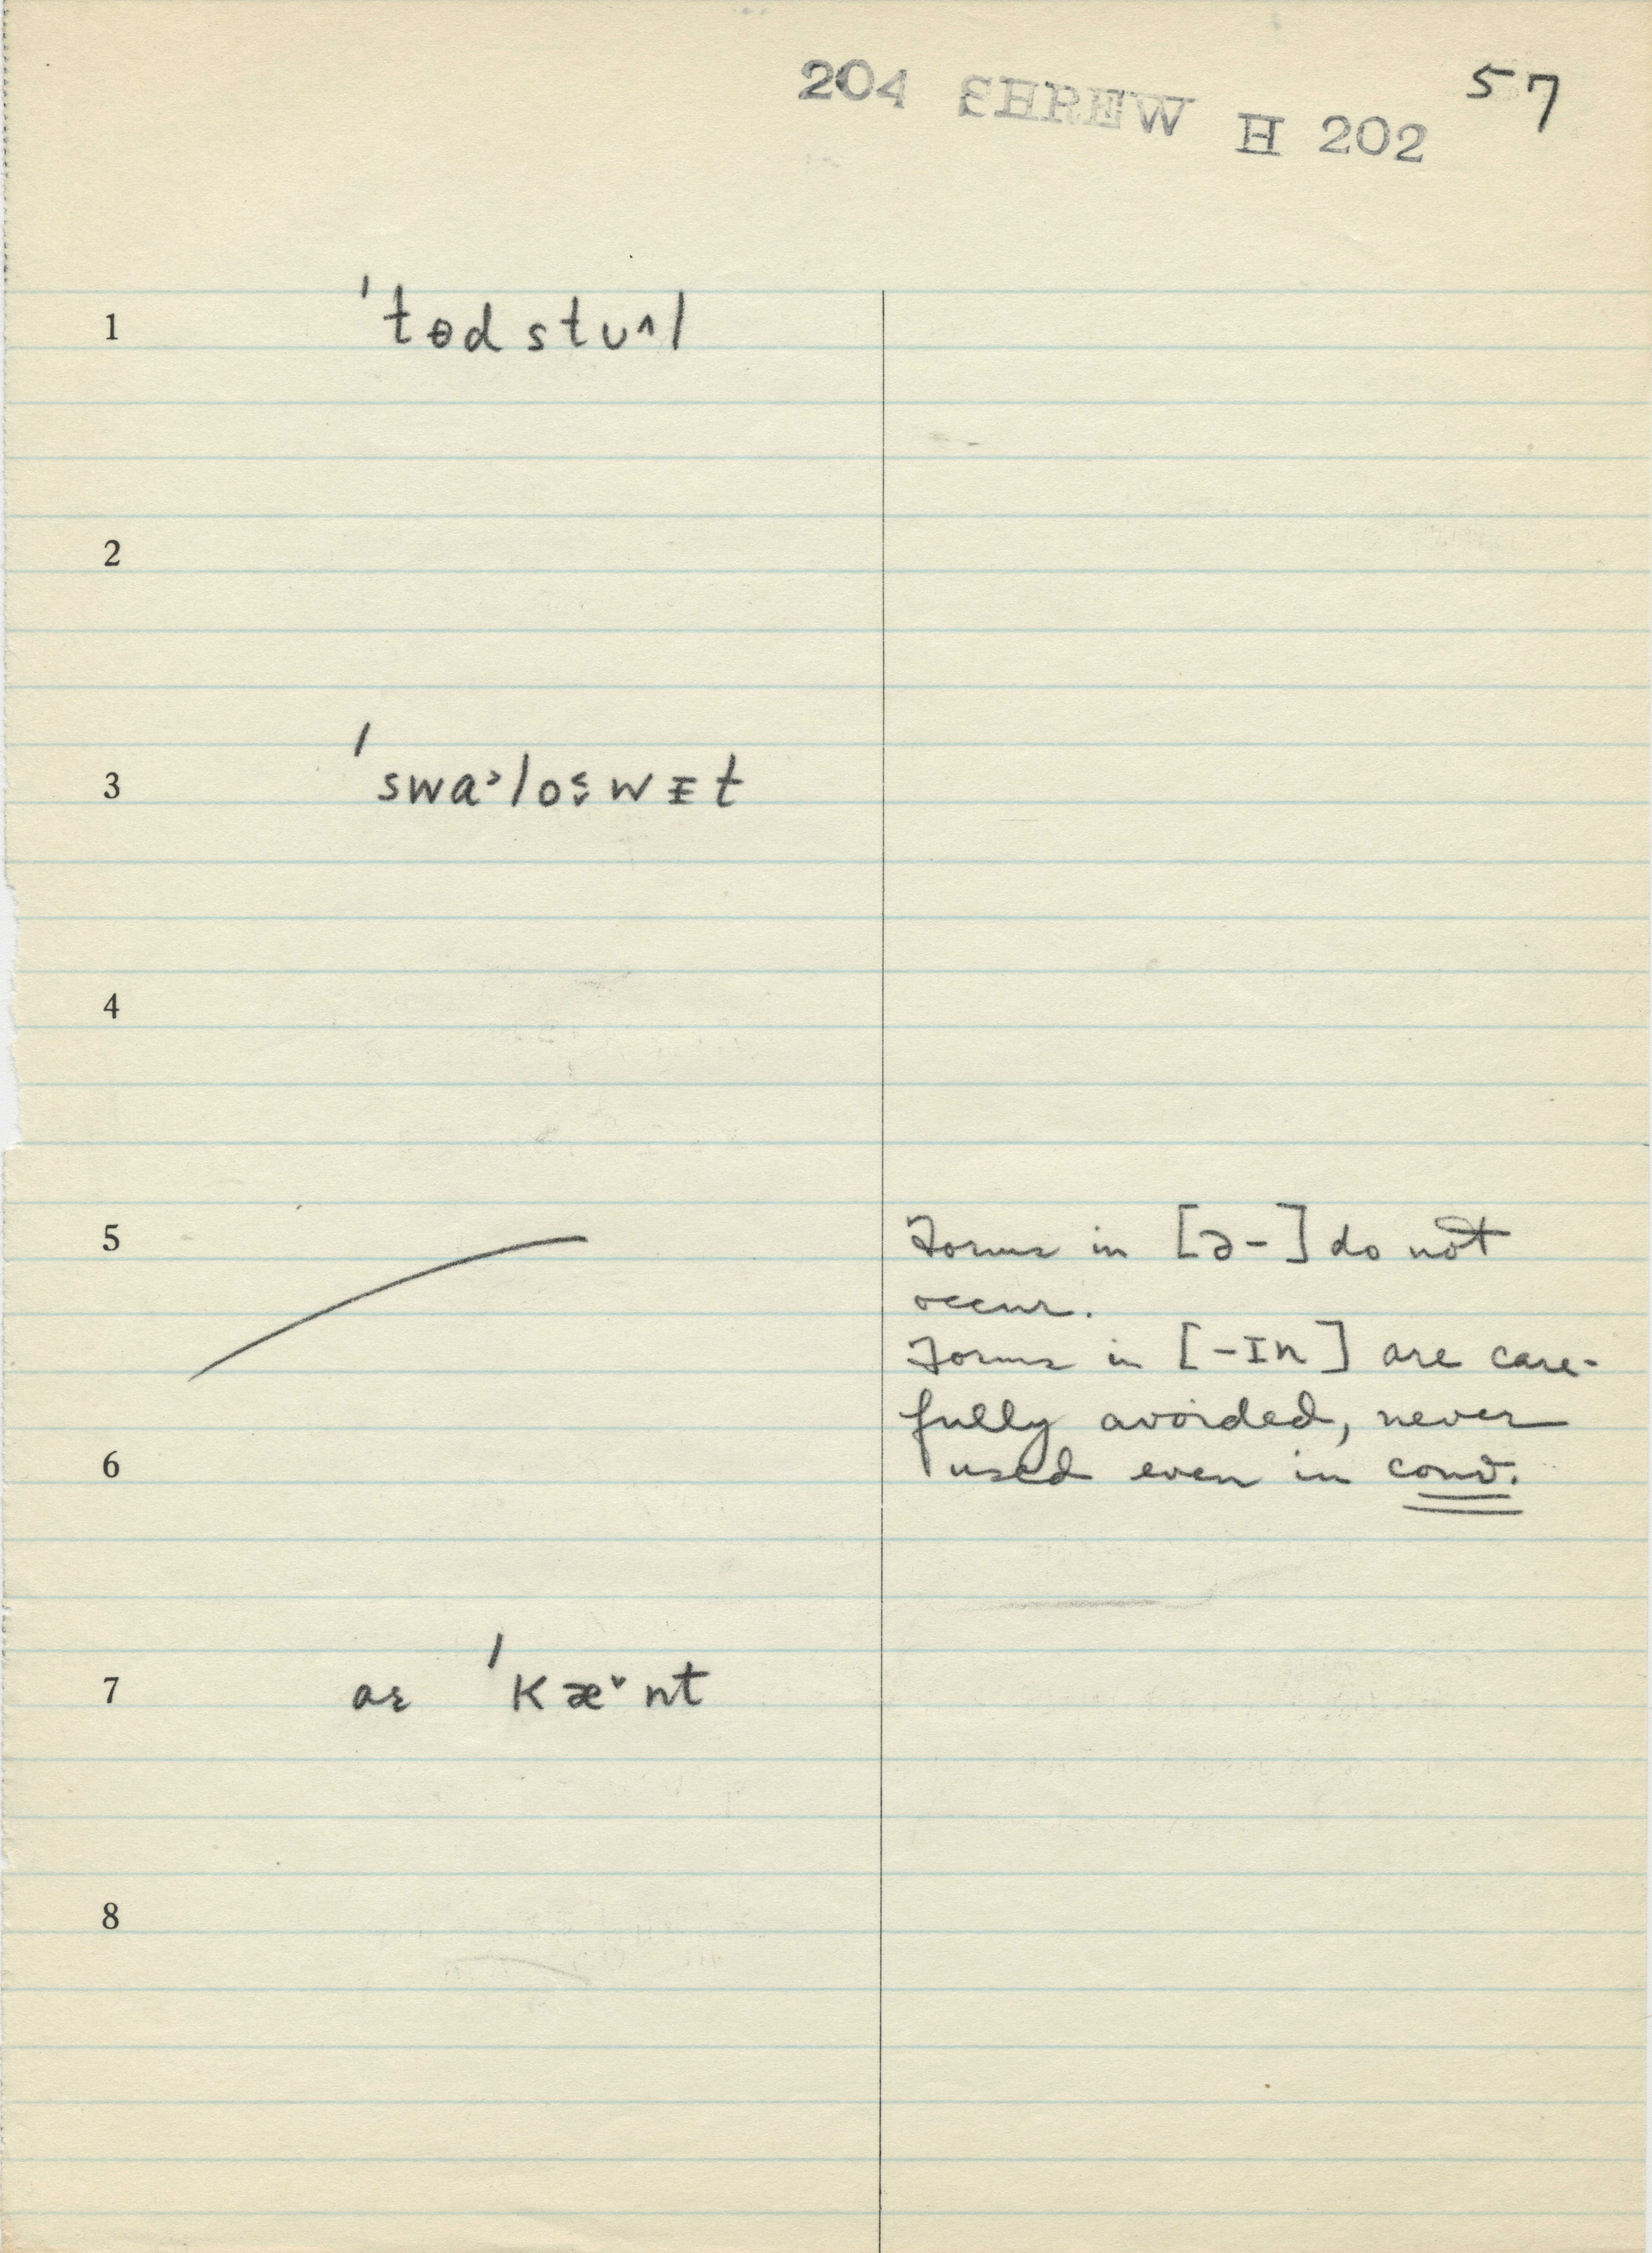 204 SHREW H 202 57
1 'tɵdstu^l
2
3 'swa˃lo˂wᵻt
4
5 Forms in [ə-] do not
occur.
Forms in [-ɪn] are care-
fully avoided, never
6 used even in conv.
7 aɛ 'kæ˅nt
8